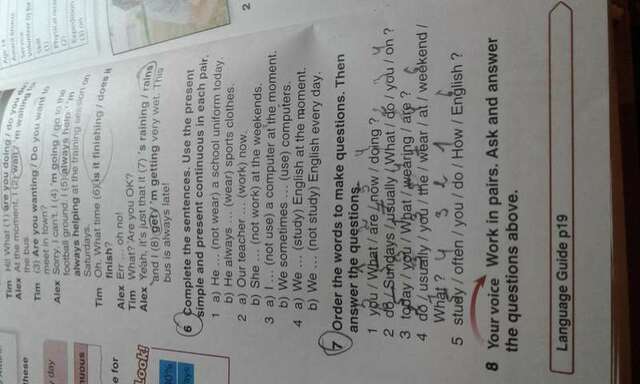 Tim Hi! What (1) are you doing / do you do
Alex At the moment, I (2) wait / 'm waiting for
the bus.
Tim (3) Are you wanting / Do you want to
meet in town?
Alex Sorry, I can't. I (4) 'm going / go to the
football ground. I (5) always help / 'm
always helping at the training session on
Saturdays.
Tim Oh. What time (6) is it finishing / does it
finish?
Alex Err ... oh no!
Tim What? Are you OK?
Alex Yeah, it's just that it (7) 's raining / rains
and I (8) get / 'm getting very wet. This
bus is always late!
these
y day
nuous
e for
Look!
00%
ays
6 Complete the sentences. Use the present
simple and present continuous in each pair.
1 a) He ... (not wear) a school uniform today.
b) He always ... (wear) sports clothes.
2 a) Our teacher ... (work) now.
b) She ... (not work) at the weekends.
3 a) I ... (not use) a computer at the moment.
b) We sometimes ... (use) computers.
4 a) We ... (study) English at the moment.
b) We ... (not study) English every day.
7 Order the words to make questions. Then
answer the questions.
1 you / What / are / now / doing ?
2 do / Sundays / usually / What / do / you / on ?
3 today / you / What / wearing / are ?
4 do / usually / you / the / wear / at / weekend /
What ?
4 3 2 1 6
5 study / often / you / do / How / English ?
8 Your voice Work in pairs. Ask and answer
the questions above.
Language Guide p19
Service
Skill
(1)
(2)
Expedition
(3) on
2